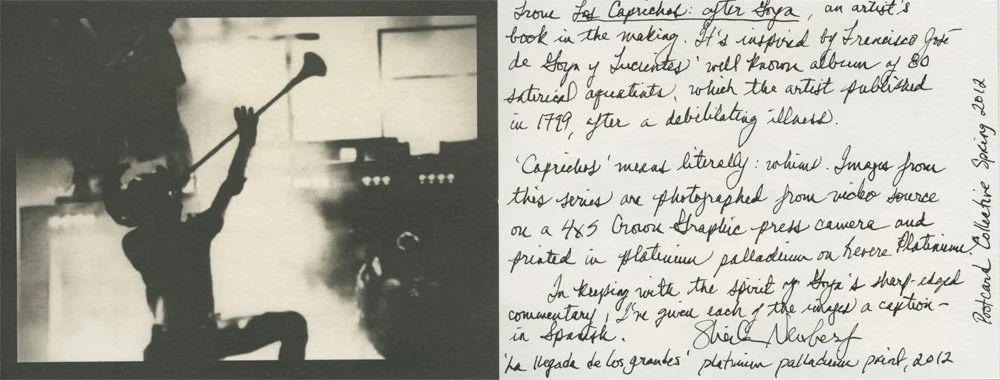 From Los Caprichos: after Goya, an artist's
book in the making. It's inspired by Francisco José
de Goya y Lucientes' well known album of 80
satirical aquatints, which the artist published
in 1799, after a debilitating illness.
'Caprichos' means literally: whims. Images from
this series are photographed from video source
on a 4x5 Crown Graphic press camera and
printed in platinum palladium on Revere Platinum.
In keeping with the spirit of Goya's sharp-edged
commentary, I've given each of the images a caption—
in Spanish. Sheila Newbery
'La llegada de los grandes' platinum palladium print, 2012
Postcard Collective Spring 2012